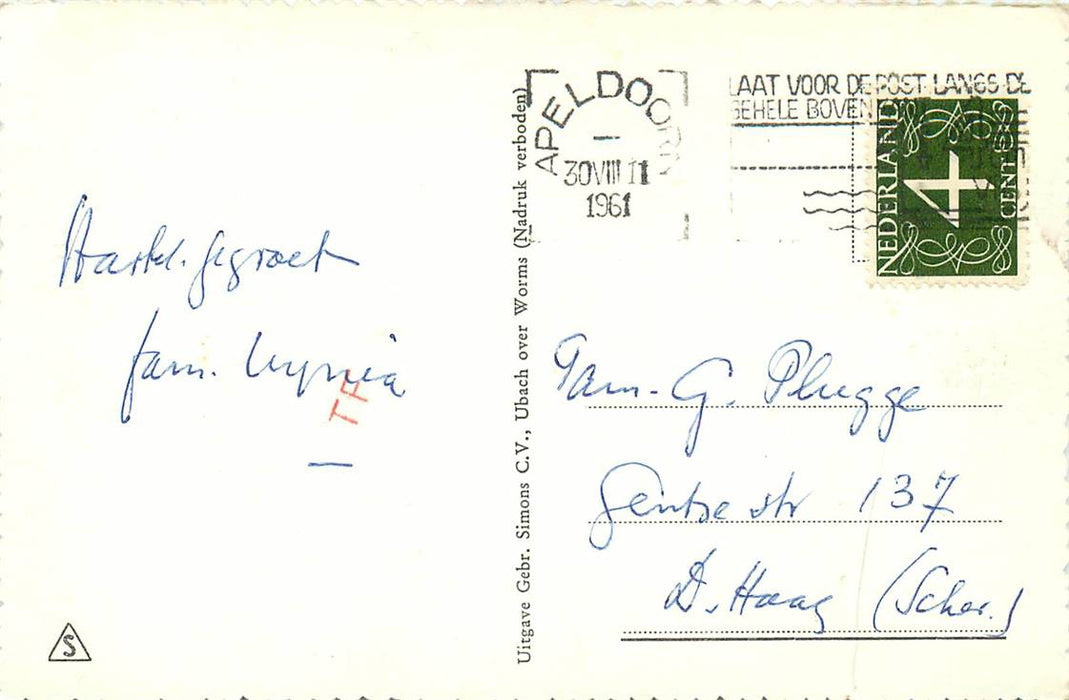 Hartel. gegroet
fam. Wynia
TF
S
Uitgave Gebr. Simons C.V., Ubach over Worms (Nadruk verboden)
APELDOORN
30 VIII 11
1961
LAAT VOOR DE POST LANGS DE
GEHELE BOVEN
NEDERLAND
4
CENT
Fam. G. Plugge
Gentse str 137
D. Haag (Schev.)